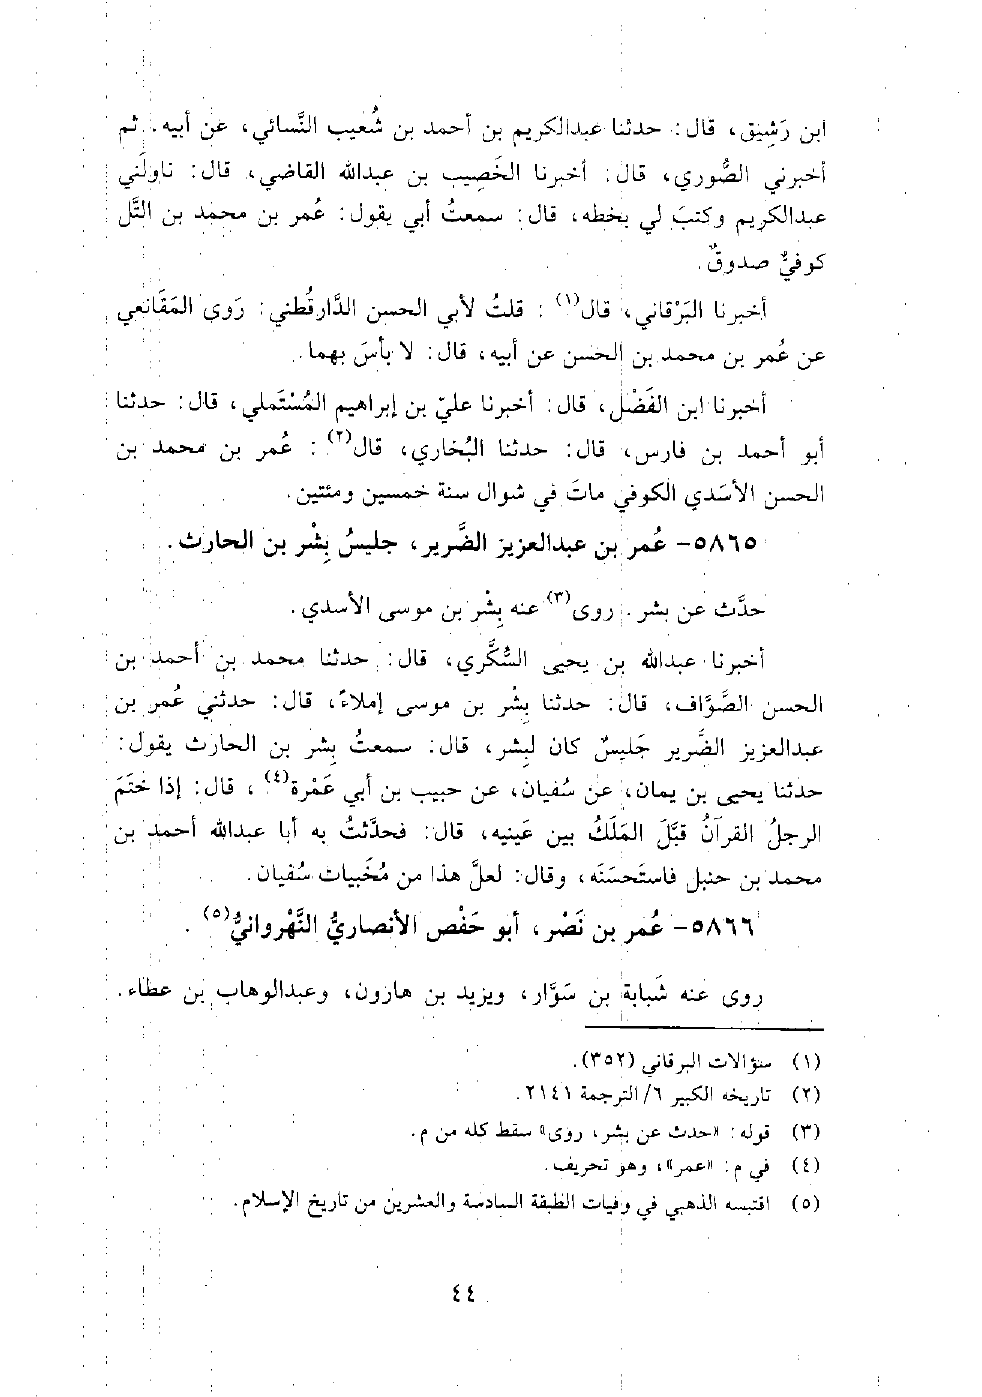 ابن رَشِيق، قال: حدثنا عبدالكريم بن أحمد بن شُعيب النَّسائي، عن أبيه. ثم
أخبرني الصُّوري، قال: أخبرنا الخَصِيب بن عبدالله القاضي، قال: ناولَني
عبدالكريم وكتبَ لي بخطه، قال: سمعتُ أبي يقول: عُمر بن محمد بن التَّل
كوفيٌّ صدوقٌ.
أخبرنا البَرْقاني، قال(١): قلتُ لأبي الحسن الدَّارقُطني: رَوى المَقَانعي
عن عُمر بن محمد بن الحسن عن أبيه، قال: لا بأسَ بهما.
أخبرنا ابن الفَضْل، قال: أخبرنا عليّ بن إبراهيم المُسْتَملي، قال: حدثنا
أبو أحمد بن فارس، قال: حدثنا البُخاري، قال(٢): عُمر بن محمد بن
الحسن الأسَدي الكوفي ماتَ في شوال سنة خمسين ومئتين.
٥٨٦٥- عُمر بن عبدالعزيز الضَّرير، جليسُ بِشْر بن الحارث.
حدَّث عن بشر. روى(٣) عنه بِشْر بن موسى الأسدي.
أخبرنا عبدالله بن يحيى السُّكَّري، قال: حدثنا محمد بن أحمد بن
الحسن الصَّوَّاف، قال: حدثنا بِشْر بن موسى إملاءً، قال: حدثني عُمر بن
عبدالعزيز الضَّرير جَليسٌ كان لبِشر، قال: سمعتُ بِشر بن الحارث يقول:
حدثنا يحيى بن يمان، عن سُفيان، عن حبيب بن أبي عَمْرة(٤)، قال: إذا ختَمَ
الرجلُ القرآنُ قبَّلَ المَلَكُ بين عَينيه، قال: فحدَّثتُ به أبا عبدالله أحمد بن
محمد بن حنبل فاستَحسَنَه، وقال: لعلَّ هذا من مُخَبيات سُفيان.
٥٨٦٦- عُمر بن نَصْر، أبو حَفْص الأنصاريُّ النَّهْروانيُّ(٥).
روى عنه شَبابة بن سَوَّار، ويزيد بن هارون، وعبدالوهاب بن عطاء.
(١) سؤالات البرقاني (٣٥٢).
(٢) تاريخه الكبير ٦/ الترجمة ٢١٤١.
(٣) قوله: «حدث عن بشر، روى» سقط كله من م.
(٤) في م: «عمر»، وهو تحريف.
(٥) اقتبسه الذهبي في وفيات الطبقة السادسة والعشرين من تاريخ الإسلام.
٤٤